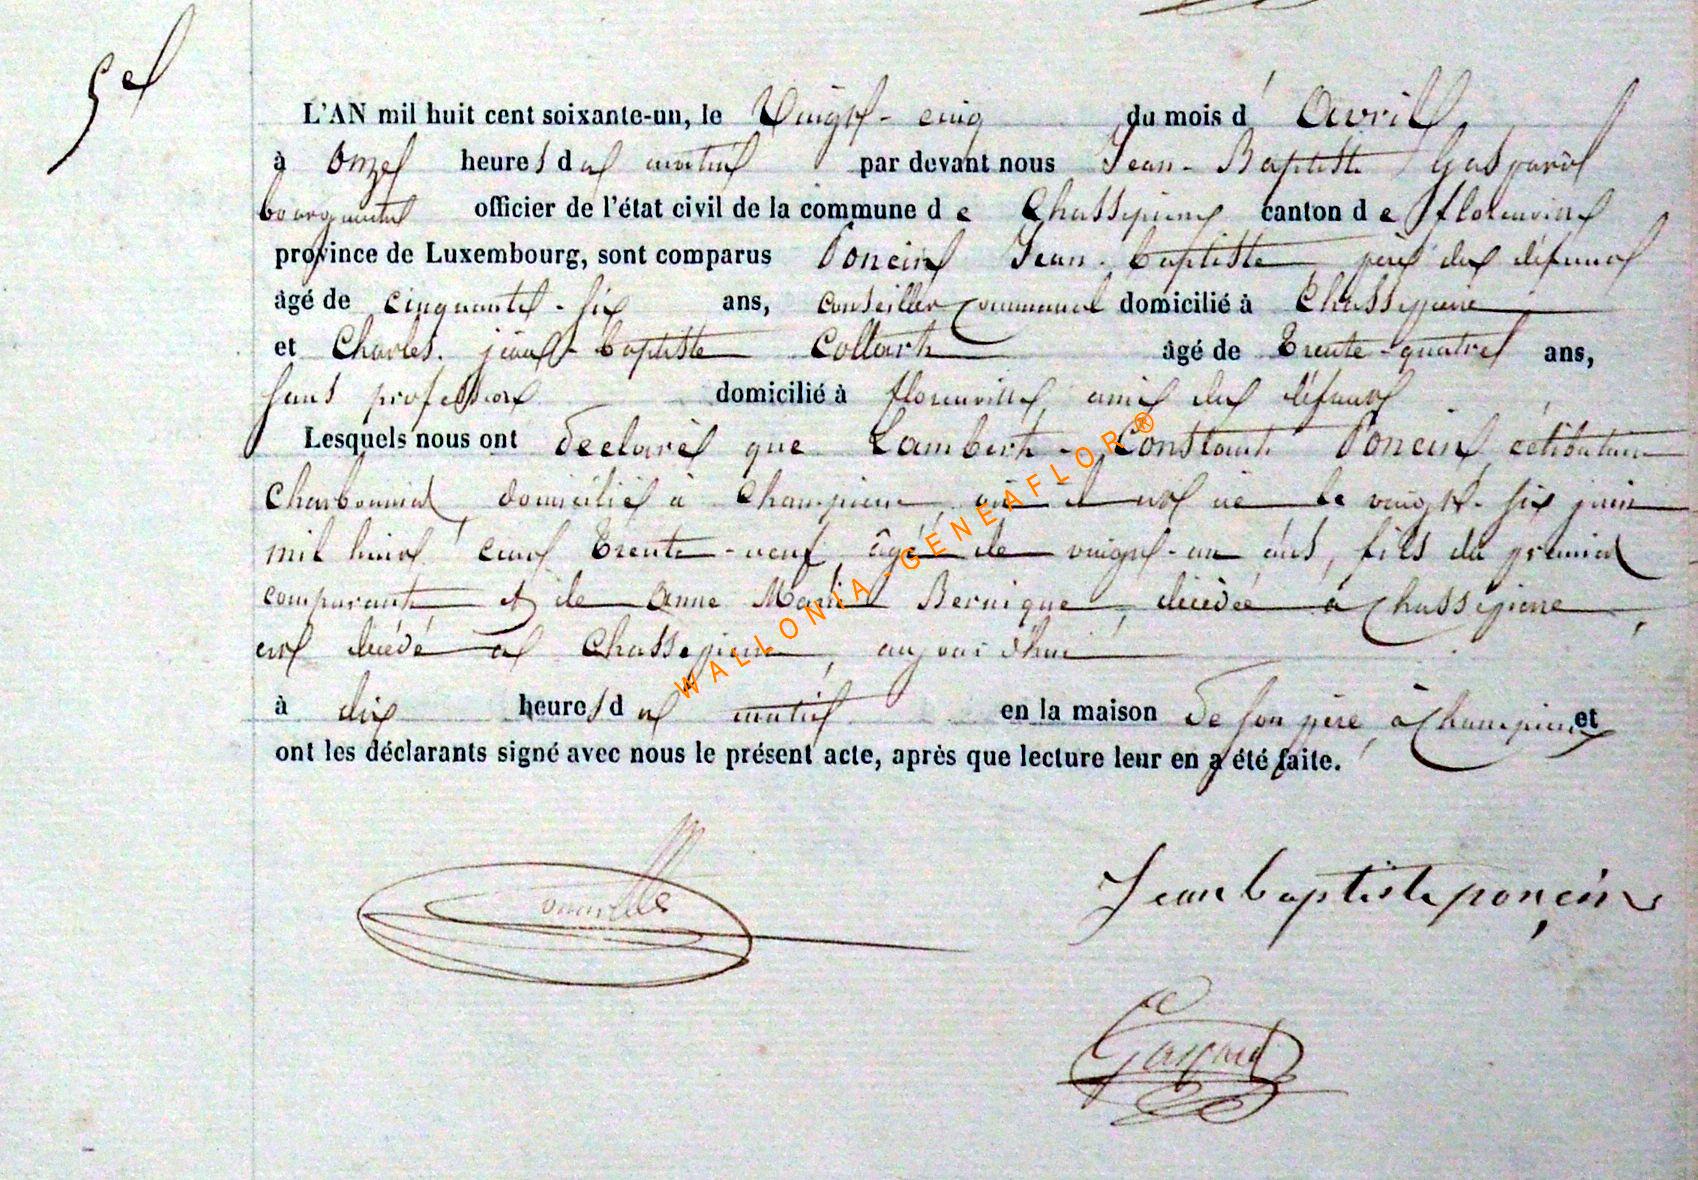 5e
L'AN mil huit cent soixante-un, le Vingt-cinq du mois d'Avril
à onze heures du matin par devant nous Jean-Baptiste Gaspard
bourgmestre officier de l'état civil de la commune de Chassepierre canton de florenville
province de Luxembourg, sont comparus Poncin Jean-baptiste, père du défunt
âgé de cinquante-six ans, conseiller communal domicilié à Chassepierre
et Charles. jean-baptiste Collart âgé de Trente-quatre ans,
sans profession domicilié à florenville, ami du défunt
Lesquels nous ont declaré que Lambert-Constant Poncin, célibataire
Charbonnier, domicilié à Champierre, où il est né le vingt-six juin
mil huit cent Trente-neuf, âgé de vingt-un ans, fils du premier
comparant et de Anne Marie Bernique, décédée à Chassepierre,
est décédé à Chassepierre, aujourd'hui
à dix heures du matin en la maison de son père, à Champierre et
ont les déclarants signé avec nous le présent acte, après que lecture leur en a été faite.
Jean baptiste poncin
Gaspard
WALLONIA-GENEAFLOR®